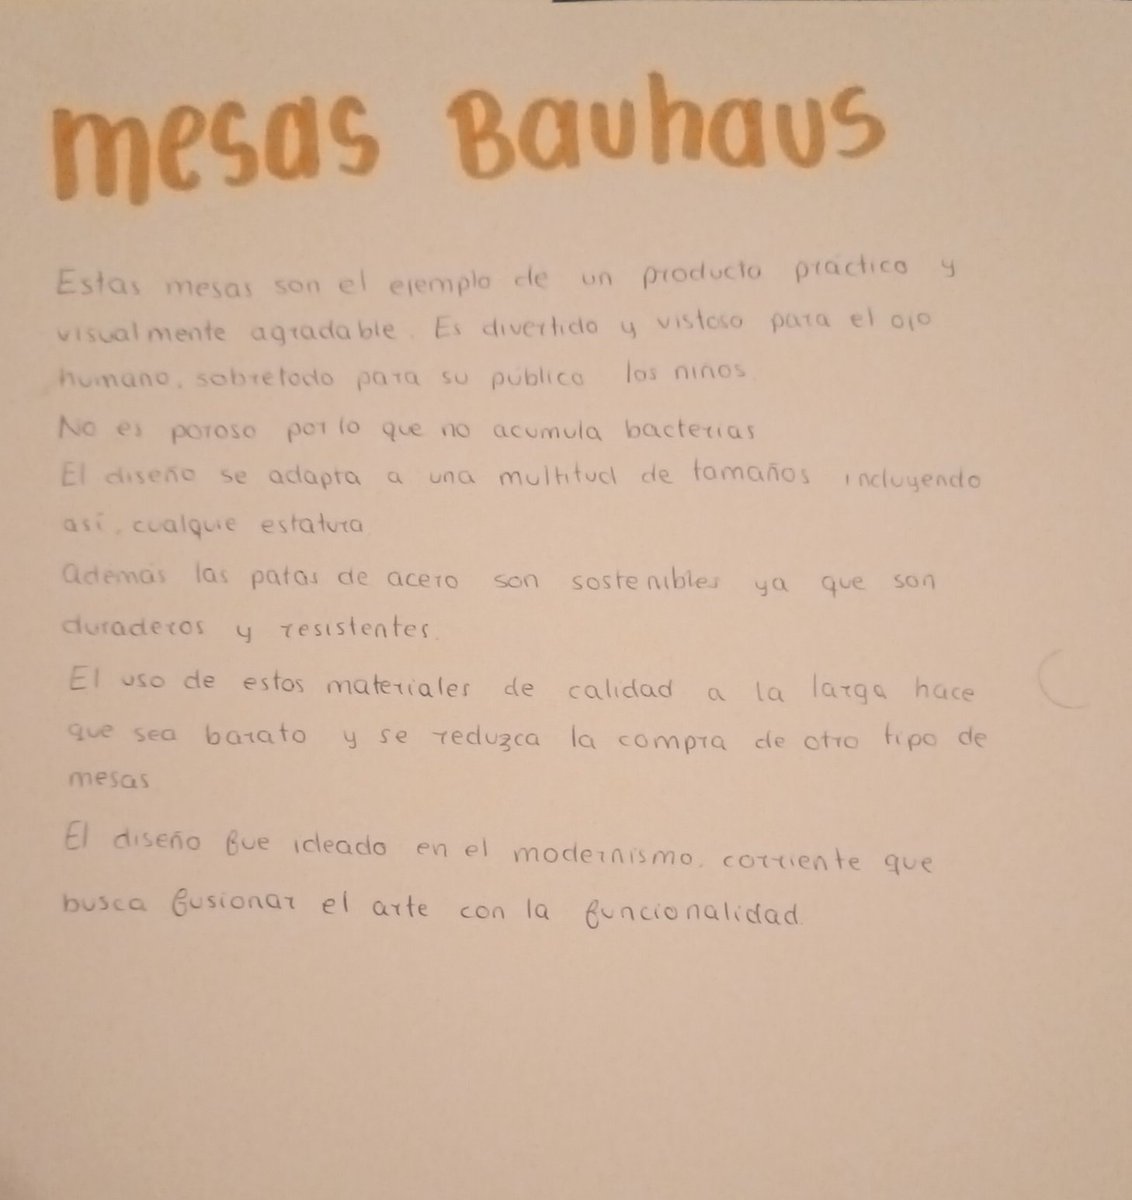 mesas Bauhaus
Estas mesas son el ejemplo de un producto práctico y
visualmente agradable. Es divertido y vistoso para el ojo
humano, sobretodo para su público los niños.
No es poroso por lo que no acumula bacterias
El diseño se adapta a una multitud de tamaños incluyendo
así, cualquie estatura
Además las patas de acero son sostenibles ya que son
duraderos y resistentes.
El uso de estos materiales de calidad a la larga hace
que sea barato y se reduzca la compra de otro tipo de
mesas
El diseño fue ideado en el modernismo. corriente que
busca fusionar el arte con la funcionalidad.